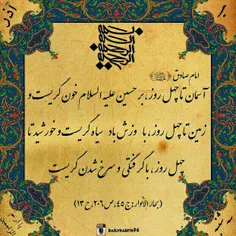 امام صادق
آسمان تا چهل روز، بر حسین علیه السلام خون گریست و
زمین تا چهل روز، با وزش باد سیاه گریست و خورشید تا
چهل روز، با گرفتگی و سرخ شدن گریست
(بحارالانوار: ج٤٥، ص٢٠٦، ح١٣)